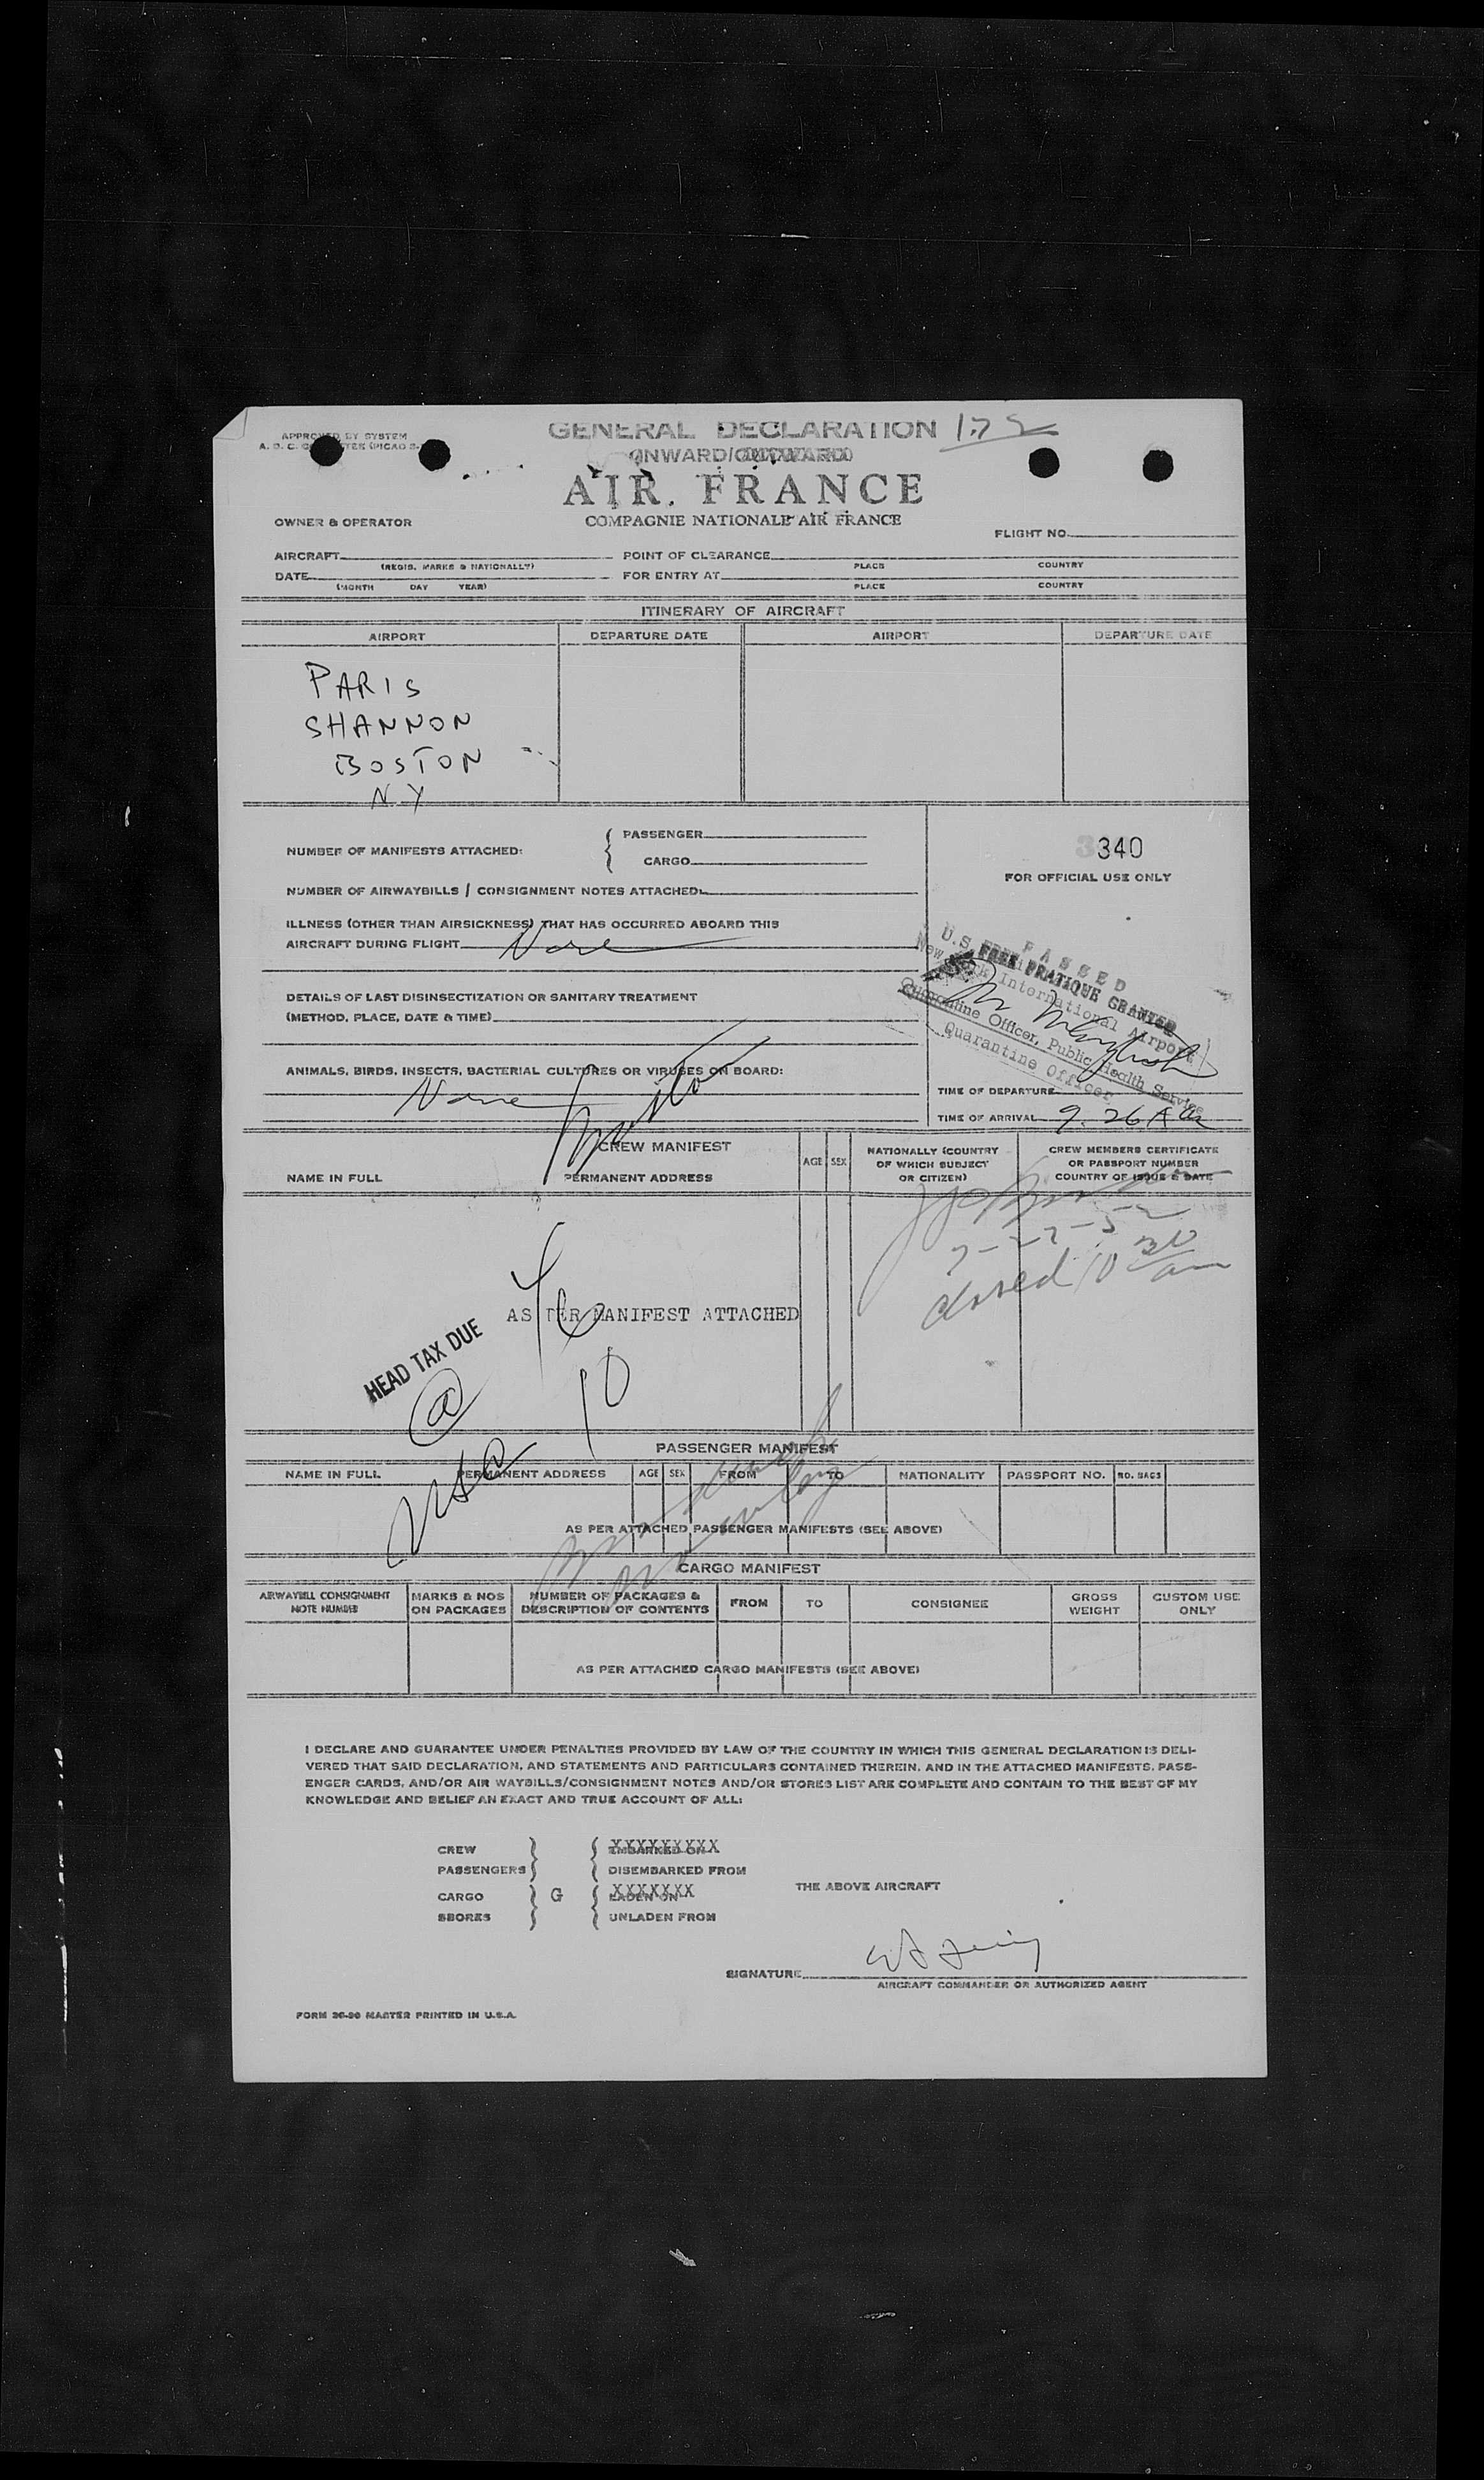 GENERAL DECLARATION 172
APPROVED BY SYSTEM
INWARD/OUTWARD
AIR FRANCE
OWNER & OPERATOR
COMPAGNIE NATIONALE AIR FRANCE
FLIGHT NO.
AIRCRAFT POINT OF CLEARANCE
(REGIS. MARKS & NATIONALLY) PLACE COUNTRY
DATE FOR ENTRY AT
(MONTH DAY YEAR) PLACE COUNTRY
ITINERARY OF AIRCRAFT
AIRPORT DEPARTURE DATE AIRPORT DEPARTURE DATE
PARIS
SHANNON
BOSTON
NY
NUMBER OF MANIFESTS ATTACHED: { PASSENGER
CARGO
340
FOR OFFICIAL USE ONLY
NUMBER OF AIRWAYBILLS / CONSIGNMENT NOTES ATTACHED:
ILLNESS (OTHER THAN AIRSICKNESS) THAT HAS OCCURRED ABOARD THIS
AIRCRAFT DURING FLIGHT None
PASSED
FREE PRATIQUE GRANTED
New York International Airport
Quarantine Officer, Public Health Service
Quarantine Officer
DETAILS OF LAST DISINSECTIZATION OR SANITARY TREATMENT
(METHOD, PLACE, DATE & TIME)
ANIMALS, BIRDS, INSECTS, BACTERIAL CULTURES OR VIRUSES ON BOARD:
None
TIME OF DEPARTURE
TIME OF ARRIVAL 9.26 A m
CREW MANIFEST
NAME IN FULL PERMANENT ADDRESS AGE SEX NATIONALLY (COUNTRY OF WHICH SUBJECT OR CITIZEN) CREW MEMBERS CERTIFICATE OR PASSPORT NUMBER COUNTRY OF ISSUE & DATE
7-27-52
closed 10 30 am
AS PER MANIFEST ATTACHED
HEAD TAX DUE
10
PASSENGER MANIFEST
NAME IN FULL PERMANENT ADDRESS AGE SEX FROM TO NATIONALITY PASSPORT NO. NO. BAGS
AS PER ATTACHED PASSENGER MANIFESTS (SEE ABOVE)
CARGO MANIFEST
AIRWAYBILL CONSIGNMENT NOTE NUMBER MARKS & NOS ON PACKAGES NUMBER OF PACKAGES & DESCRIPTION OF CONTENTS FROM TO CONSIGNEE GROSS WEIGHT CUSTOM USE ONLY
AS PER ATTACHED CARGO MANIFESTS (SEE ABOVE)
I DECLARE AND GUARANTEE UNDER PENALTIES PROVIDED BY LAW OF THE COUNTRY IN WHICH THIS GENERAL DECLARATION IS DELI-
VERED THAT SAID DECLARATION, AND STATEMENTS AND PARTICULARS CONTAINED THEREIN, AND IN THE ATTACHED MANIFESTS, PASS-
ENGER CARDS, AND/OR AIR WAYBILLS/CONSIGNMENT NOTES AND/OR STORES LIST ARE COMPLETE AND CONTAIN TO THE BEST OF MY
KNOWLEDGE AND BELIEF AN EXACT AND TRUE ACCOUNT OF ALL:
CREW EMBARKED ON
PASSENGERS DISEMBARKED FROM
THE ABOVE AIRCRAFT
CARGO G LADEN ON
SBORES UNLADEN FROM
SIGNATURE
AIRCRAFT COMMANDER OR AUTHORIZED AGENT
FORM 26-20 MASTER PRINTED IN U.S.A.